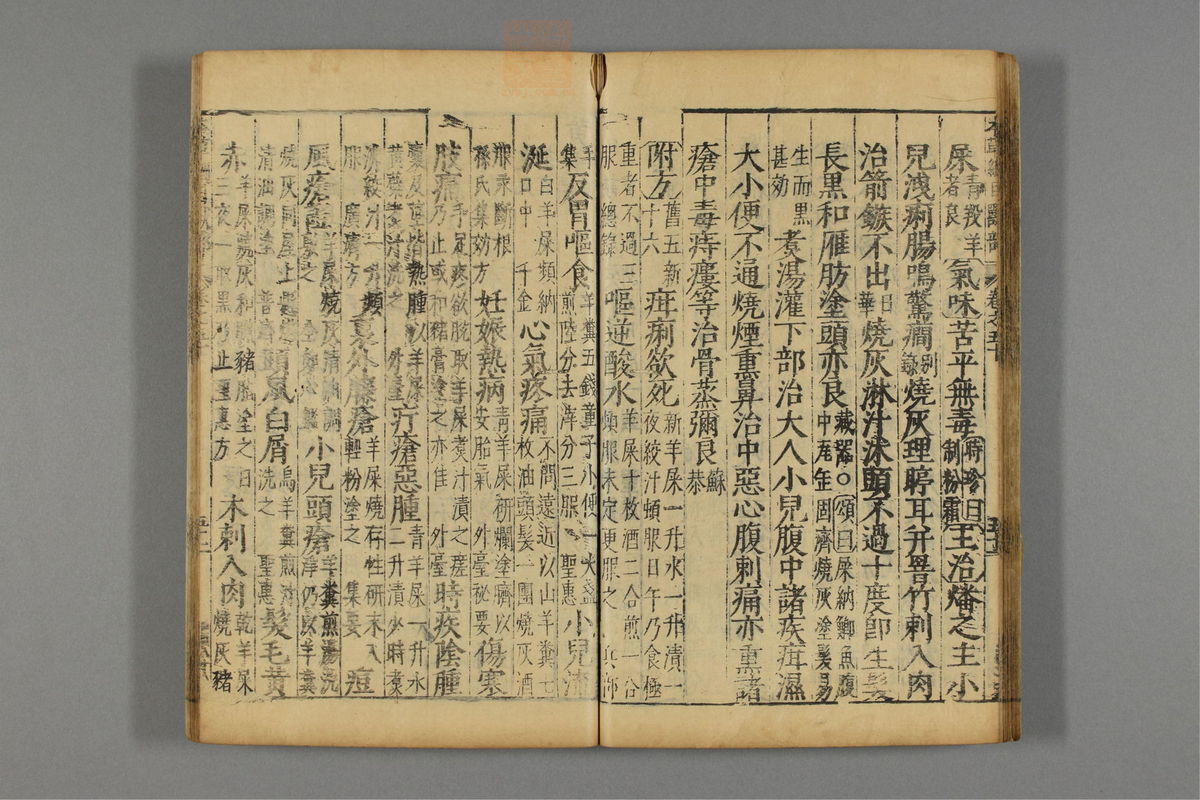 屎青羖羊者良氣味苦平無毒時珍曰制粉霜主治燔之主小
兒洩痢腸鳴驚癎别錄燒灰理聤耳并罯竹刺入肉
治箭鏃不出日華燒灰淋汁沐頭不過十度即生髮
長黑和雁肪塗頭亦良藏器○頌曰屎納鯽魚腹中瓦缶固濟燒灰塗髮易
生而黑甚効煮湯灌下部治大人小兒腹中諸疾疳濕
大小便不通燒煙熏鼻治中惡心腹刺痛亦熏諸
瘡中毒痔瘻等治骨蒸彌良蘇恭
附方舊五新十六疳痢欲死新羊屎一升水一升漬一夜絞汁頓服日午乃食極
重者不過三服總錄嘔逆酸水羊屎十枚酒二合煎一合頓服未定更服之 兵部
手集反胃嘔食羊糞五錢童子小便一大盞煎陸分去滓分三服 聖惠小兒流
涎白羊屎頻納口中 千金心氣疼痛不問遠近以山羊糞七枚油頭髮一團燒灰酒
服永斷根孫氏集効方妊娠熱病青羊屎研爛塗臍以安胎氣 外臺秘要傷寒
肢痛手足疼欲脫取羊屎煮汁漬之瘥乃止或和豬膏塗之亦佳 外臺時疾陰腫
囊及莖皆熱腫以羊屎黃蘗煮汁洗之 外臺疔瘡惡腫青羊屎一升水二升漬少時煮
沸絞汁一升頓服 廣濟方裏外臁瘡羊屎燒存性研末入輕粉塗之 集要痘
風瘡羊屎燒灰清油調之小兒頭瘡羊糞煎湯洗淨仍以羊糞
燒灰同屋上清油調塗 普濟頭風白屑烏羊糞煎汁洗之 聖惠髮毛黃
赤羊屎燒灰和臘豬脂塗之日三夜一取黑乃止聖惠方木刺入肉乾羊屎燒灰豬